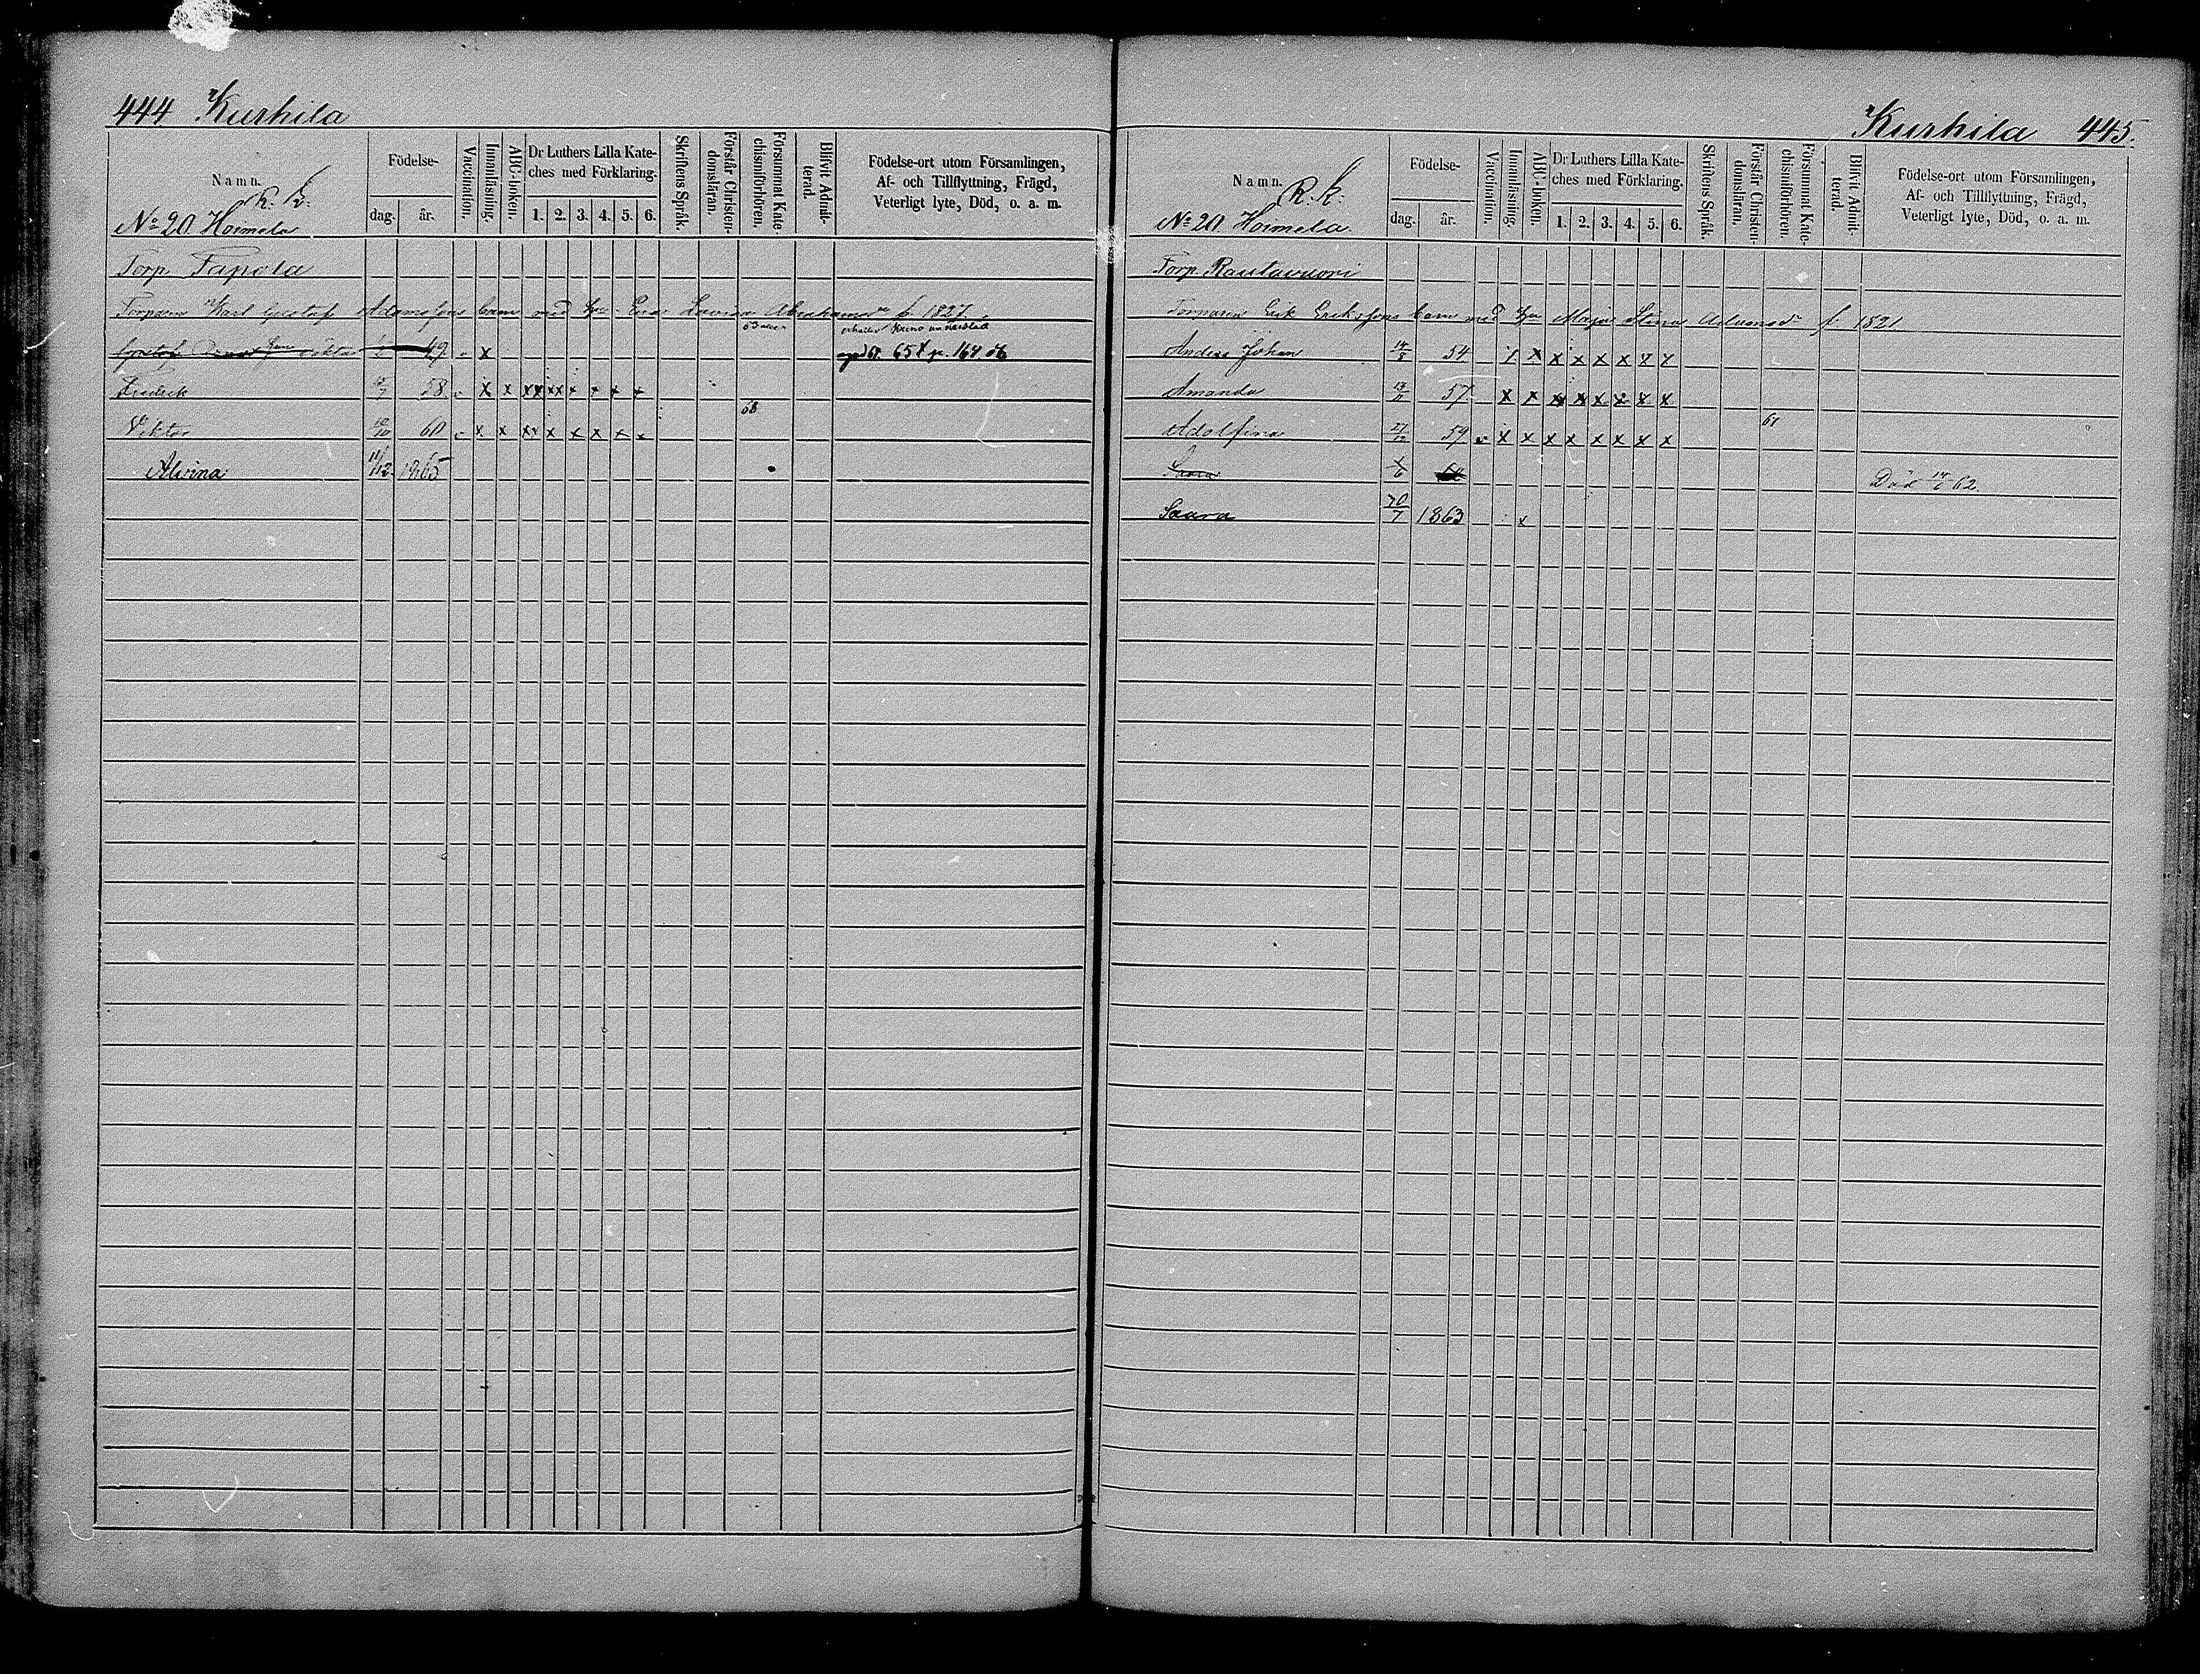 444. Kurhila
Namn. R. K.
No 20. Hoimela
Födelse-
dag. år.
Vaccination.
Innanläsning.
ABC-boken.
Dr Luthers Lilla Kate-
ches med Förklaring.
1. 2. 3. 4. 5. 6.
Skriftens Språk.
Förstår Christen-
domsläran.
Försummat Kate-
chismiförhören.
Blifvit Admit-
terad.
Födelse-ort utom Församlingen,
Af- och Tillflyttning, Frägd,
Veterligt lyte, Död, o. a. m.
Torp. Tapola
Torparen Karl Gustaf Adamsson barn med hu Eva Lovisa Abrahamsdr f. 1827.
Gustaf 49 x 65 p. 164
Fredrik 58 x x xx xx x x x x
68
Viktor 60 x x xx x x x x x
Alvina 11/12 1865
Kurhila 445.
Namn. R. K.
No 20. Hoimela
Födelse-
dag. år.
Vaccination.
Innanläsning.
ABC-boken.
Dr Luthers Lilla Kate-
ches med Förklaring.
1. 2. 3. 4. 5. 6.
Skriftens Språk.
Förstår Christen-
domsläran.
Försummat Kate-
chismiförhören.
Blifvit Admit-
terad.
Födelse-ort utom Församlingen,
Af- och Tillflyttning, Frägd,
Veterligt lyte, Död, o. a. m.
Torp. Rautavuori
Torparen Erik Eriksson barn med hu Maja Stina f. 1821
Anders Johan 54 x x x x x x x x
Amanda 57 x x x x x x x x
Adolfina 27/12 59 x x x x x x x x
Saara 1/6 Död 62.
Saara 30/7 1863 x